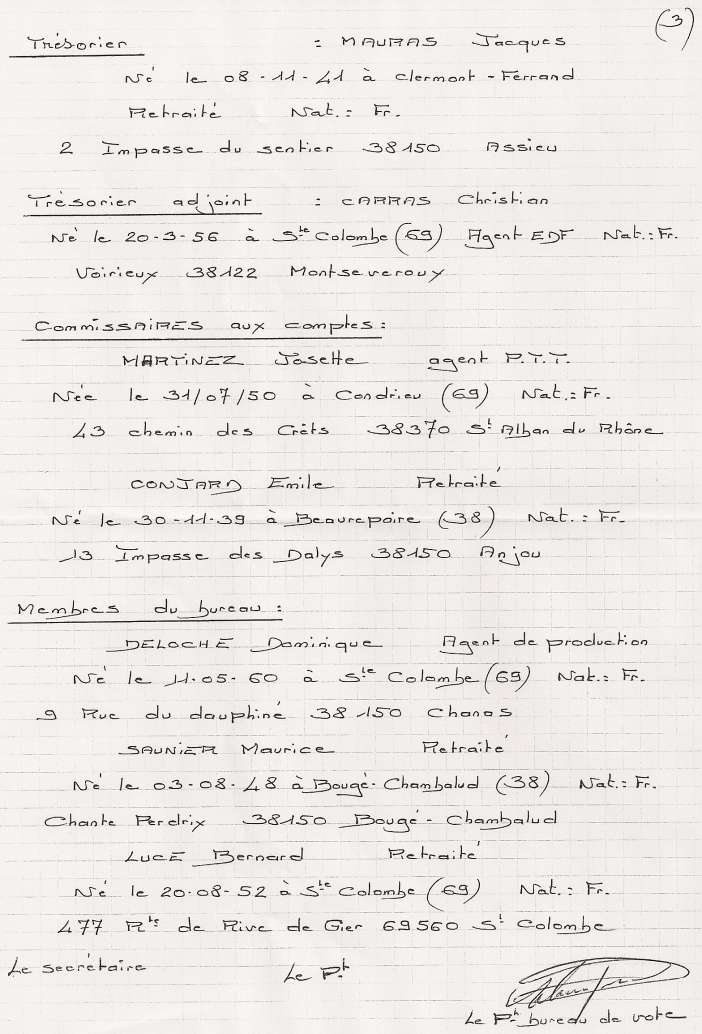 (3)
Trésorier : MAURAS Jacques
Né le 08-11-41 à Clermont-Ferrand
Retraité Nat.: Fr.
2 Impasse du sentier 38150 Assieu
Trésorier adjoint : CARRAS Christian
Né le 20-3-56 à Ste Colombe (69) Agent EDF Nat.: Fr.
Voirieux 38122 Montseveroux
Commissaires aux comptes :
MARTINEZ Josette agent P.T.T.
Née le 31/07/50 à Condrieu (69) Nat.: Fr.
43 chemin des Crêts 38370 St Alban du Rhône
CONJARD Emile Retraité
Né le 30-11-39 à Beaurepaire (38) Nat.: Fr.
13 Impasse des Dalys 38150 Anjou
Membres du bureau :
DELOCHE Dominique Agent de production
Né le 11.05-60 à Ste Colombe (69) Nat.: Fr.
9 Rue du dauphiné 38150 Chanas
SAUNIER Maurice Retraité
Né le 03-08-48 à Bougé-Chambalud (38) Nat.: Fr.
Chante Perdrix 38150 Bougé-Chambalud
LUCE Bernard Retraité
Né le 20-08-52 à Ste Colombe (69) Nat.: Fr.
477 Rte de Rive de Gier 69560 St Colombe
Le secrétaire Le Pt
Le Pt bureau de vote